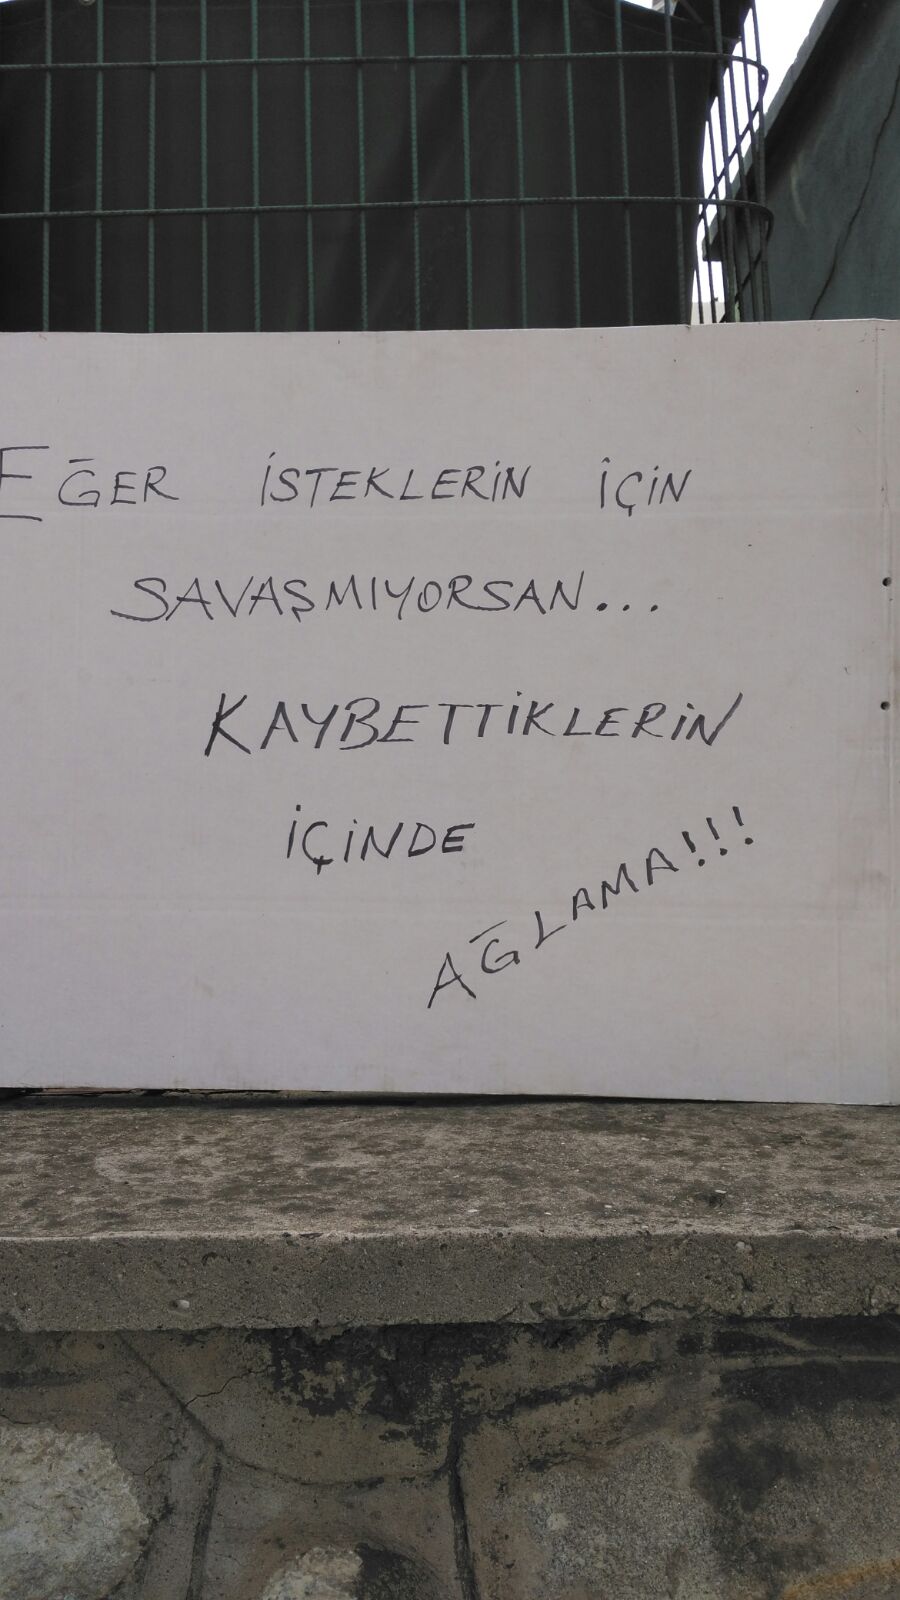 EĞER İSTEKLERİN İÇİN
SAVAŞMIYORSAN...
KAYBETTİKLERİN
İÇİNDE
AĞLAMA!!!